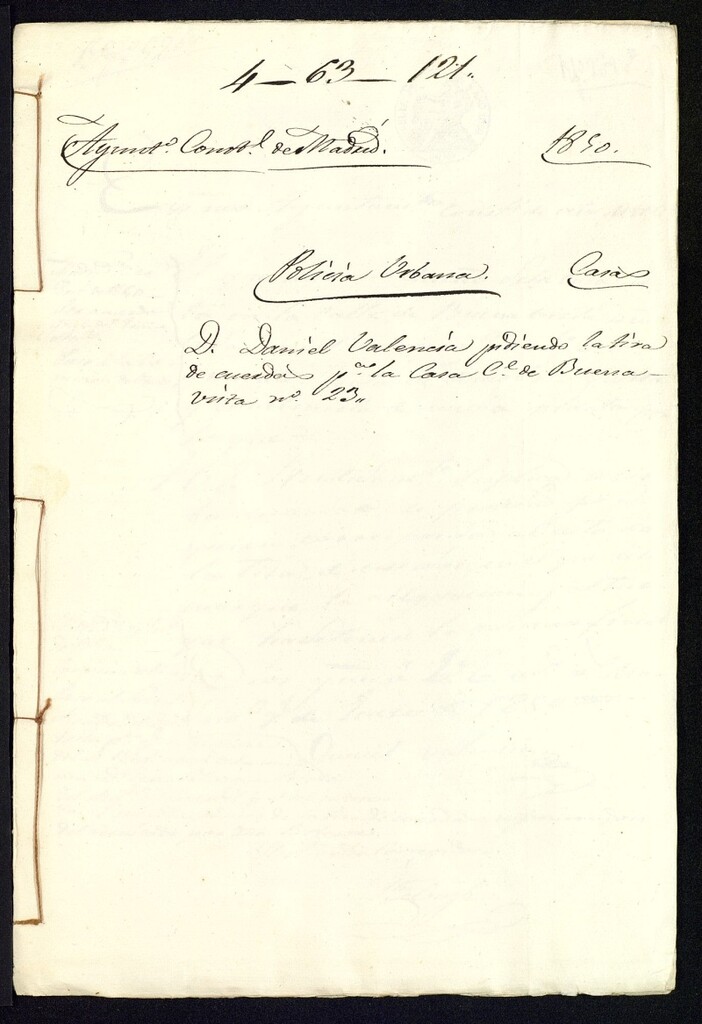 4 — 63 — 121.
Ayunt.º Const.l de Madrid. 1850.
Policía Urbana. Casas
D. Daniel Valencia pidiendo la tira
de cuerdas p.ª la Casa C.e de Buena-
vista nº. 23,,